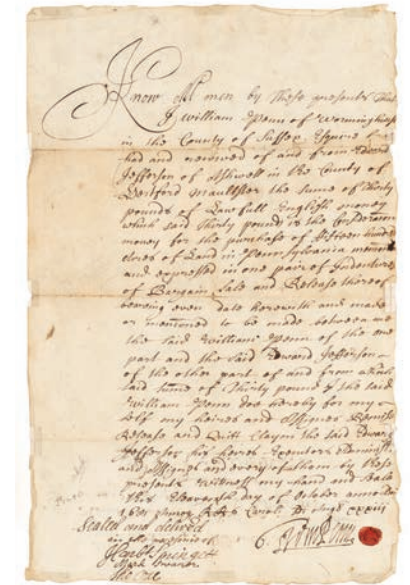 Know All men by these presents that
I William Penn of Worminghurst
in the County of Sussex Esquire have
had and received of and from Edward
Jefferson of Ashwell in the County of
Hertford Maultster the sume of thirty
pounds of Lawfull English money
which said thirty pounds is the Consideracon
money for the purchase of fifteen hundred
Acres of Land in Pennsylvania menconed
and expressed in one pair of Indentures
of Bargain Sale and Release thereof
bearing even date herewith and made
or menconed to be made between me
the said William Penn of the one
part and the said Edward Jefferson
of the other part of and from which
said sume of thirty pounds I the said
William Penn doe hereby for my
self my heires and Assignes Remise
Release and Quitt Clayme the said Edward
Jefferson his heires Executors Administ
and Assignes and every of them by these
presents Witness my hand and Seale
this Eleaventh day of October anno dm
1681
Sealed and delivered
in the presence of
Harbt Springett
Wm Penn